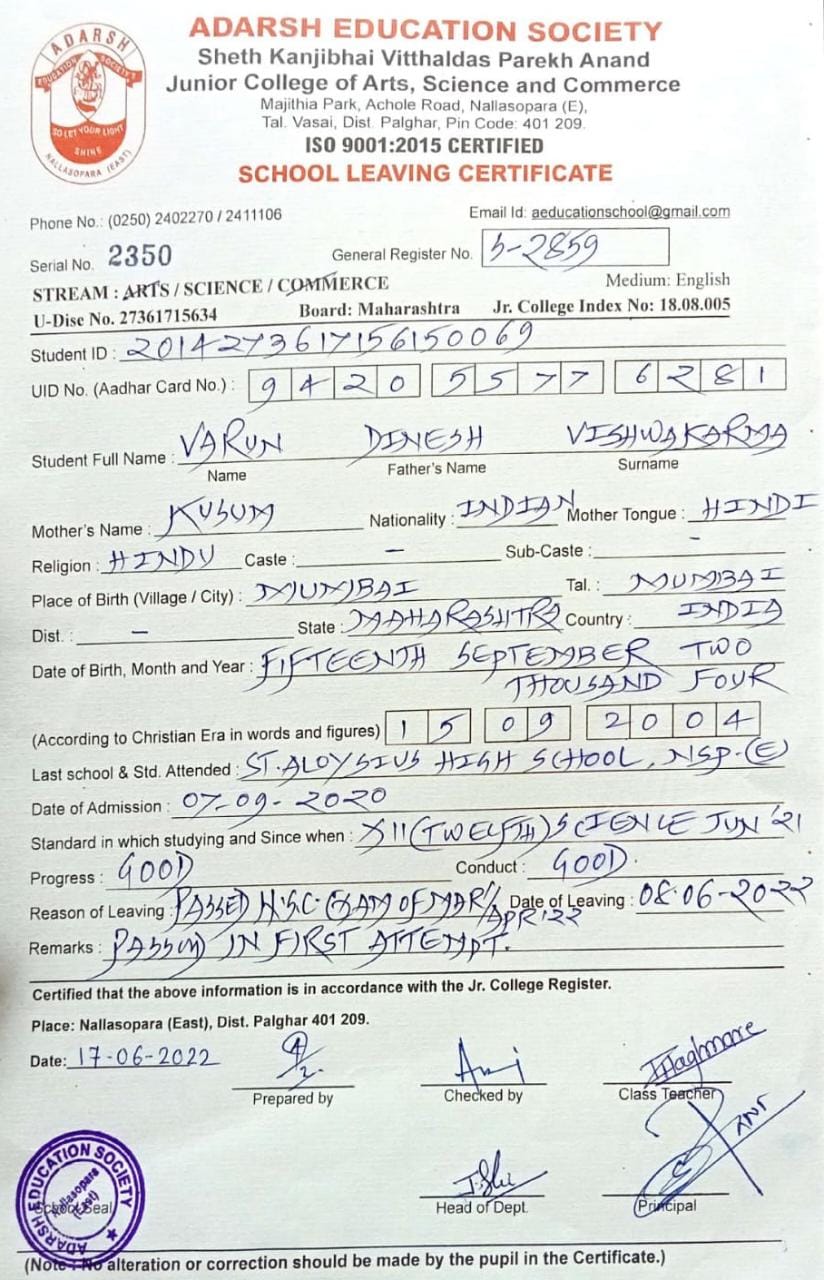 ADARSH
EDUCATION SOCIETY'S
SO LET YOUR LIGHT
SHINE
NALLASOPARA (EAST)
ADARSH EDUCATION SOCIETY
Sheth Kanjibhai Vitthaldas Parekh Anand
Junior College of Arts, Science and Commerce
Majithia Park, Achole Road, Nallasopara (E),
Tal. Vasai, Dist. Palghar, Pin Code: 401 209.
ISO 9001:2015 CERTIFIED
SCHOOL LEAVING CERTIFICATE
Phone No.: (0250) 2402270 / 2411106 Email Id: aeducationschool@gmail.com
Serial No. 2350 General Register No. 5-2859
STREAM : ARTS / SCIENCE / COMMERCE Medium: English
U-Disc No. 27361715634 Board: Maharashtra Jr. College Index No: 18.08.005
Student ID : 2014273617156150069
UID No. (Aadhar Card No.) : 9420 5577 6281
Student Full Name : VARUN DINESH VISHWAKARMA
Name Father's Name Surname
Mother's Name : KUSUM Nationality : INDIAN Mother Tongue : HINDI
Religion : HINDU Caste : – Sub-Caste : –
Place of Birth (Village / City) : MUMBAI Tal. : MUMBAI
Dist. : – State : MAHARASHTRA Country : INDIA
Date of Birth, Month and Year : FIFTEENTH SEPTEMBER TWO
THOUSAND FOUR
(According to Christian Era in words and figures) 15 09 2004
Last school & Std. Attended : ST. ALOYSIUS HIGH SCHOOL, NSP-(E)
Date of Admission : 07-09-2020
Standard in which studying and Since when : XII (TWELFTH) SCIENCE JUN '21
Progress : GOOD Conduct : GOOD.
Reason of Leaving : PASSED H.S.C. EXAM OF MAR/APR'22 Date of Leaving : 08.06-2022
Remarks : PASSED IN FIRST ATTEMPT.
Certified that the above information is in accordance with the Jr. College Register.
Place: Nallasopara (East), Dist. Palghar 401 209.
Date: 17-06-2022
Prepared by Checked by Class Teacher
ADARSH EDUCATION SOCIETY
Nallasopara
(East)
School Seal Head of Dept. Principal
(Note : No alteration or correction should be made by the pupil in the Certificate.)